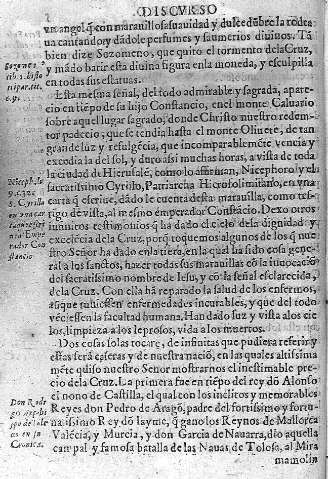 DISCVRSO
vn angel, q̃ con marauillosa suauidad y dulcedũbre la rodeaua
cantando, y dádole perfumes y saumerios diuinos. Tã
bien dize Sozomeno, que quito el tormento de la Cruz,
y mãdo batir esta diuina figura en la moneda, y esculpilla
en todas sus estatuas.
Esta mesma señal, del todo admirable y sagrada, aparecio
en tiẽpo de su hijo Constancio, en el monte Caluario
sobre aquel lugar sagrado, donde Christo nuestro redemtor
padecio, que se tendia hasta el monte Oliuete, de tan
grande luz y resulgẽcia, que incomparablemẽte vencia y
excedia la del sol, y duro assi muchas horas, a vista de toda
la ciudad de Hierusalẽ, como lo affirman, Nicephoro y el
sacratissimo Cyrillo, Patriarcha Hierosolimitano, en vna
carta q̃ escriue, dãdo le cuenta desta marauilla, como testigo
de vista, al mesmo emperador Constãcio. Dexo otros
infinitos testimonios q̃ ha dado el cielo de la dignidad y
excelẽcia de la Cruz, porq̃ toquemos algunos de los q̃ nuestro
Señor ha dado en la tierra, en la qual ha sido cosa general
a los sanctos, hazer todas sus marauillas cõ la inuocaciõ
del sacratissimo nombre de Iesu, y cõ la señal esclarecida,
de la Cruz. Con ella hã reparado la salud de los enfermos,
aũque tuuiessen enfermedades incurables, y que del todo
vẽciessen la facultad humana. Han dado luz y vista a los ciegos,
limpieza a los leprosos, vida a los muertos.
Dos cosas solas tocare, de infinitas que pudiera referir y
estas serã caseras y de nuestra naciõ, en las quales altissimamẽte
quiso nuestro Señor mostrarnos el inestimable precio
de la Cruz. La primera fue en tiẽpo del rey dõ Alonso
el nono de Castilla, el qual con los inclitos y memorables
Reyes don Pedro de Aragõ, padre del fortissimo y fortunatissimo
Rey dõ Iayme, q̃ gano los Reynos de Mallorca
Valẽcia, y Murcia, y don Garcia de Nauarra, dio aquella
campal y famosa batalla de las Nauas de Tolosa, al Mira
mamolin
Sozome.
lib. 1. histo
tripar. tit.
c. 9.
Niceph. li.
9. c. 32.
S. Cyrillo
Constancio
Don Rodrigo
Arçobispo
de Toledo
en su
Coronica.